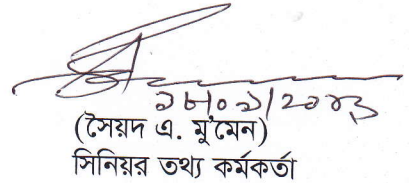 ১৮/০১/২০২৩
(সৈয়দ এ. মু'মেন)
সিনিয়র তথ্য কর্মকর্তা